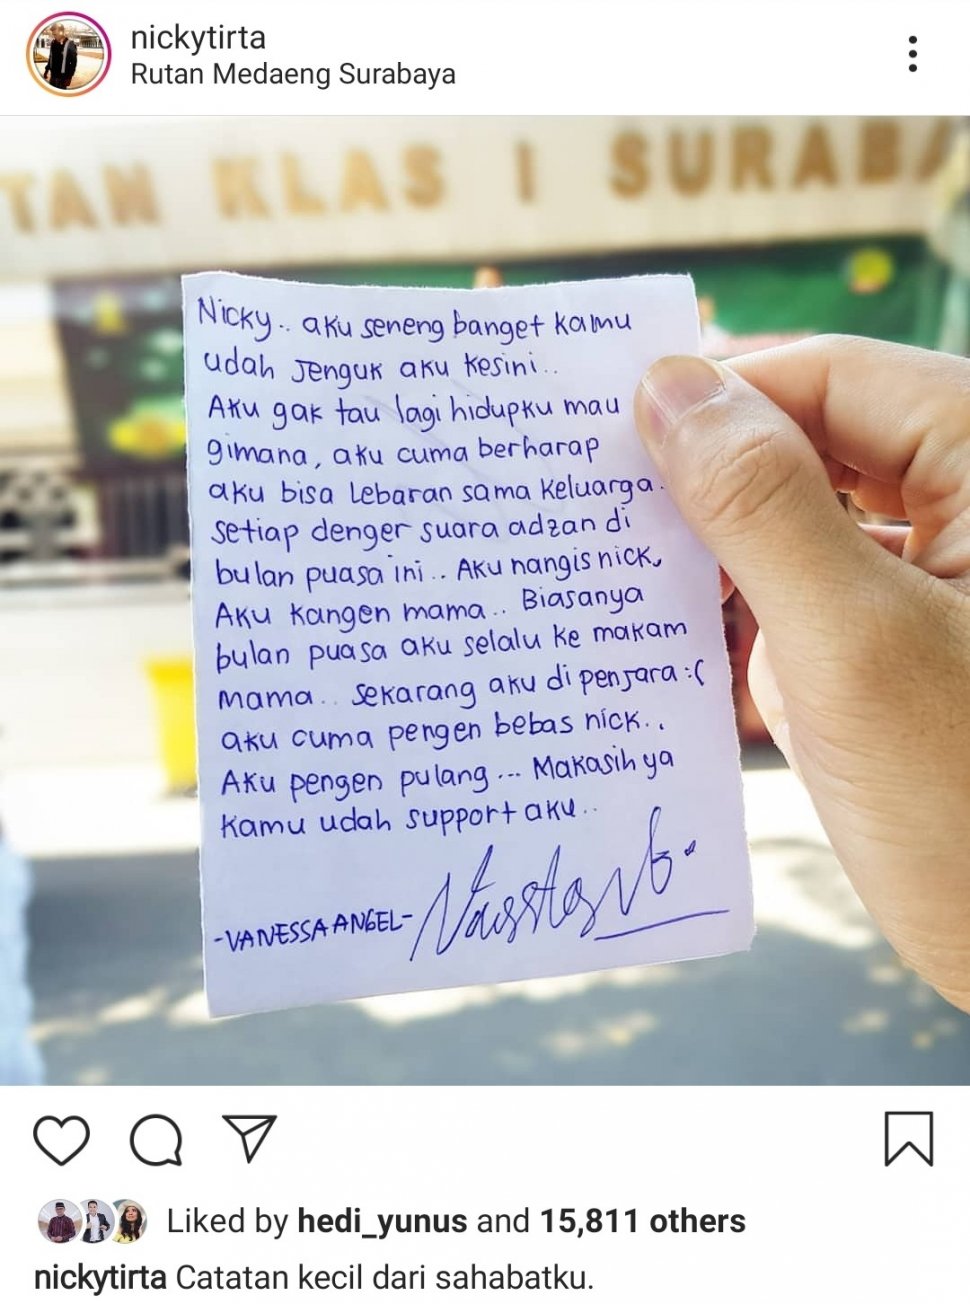 nickytirta
Rutan Medaeng Surabaya
TAN KLAS I SURABA
Nicky.. aku seneng banget kamu
udah Jenguk aku kesini..
Aku gak tau lagi hidupku mau
gimana, aku cuma berharap
aku bisa Lebaran sama keluarga.
setiap denger suara adzan di
bulan puasa ini.. Aku nangis nick,
Aku kangen mama.. Biasanya
bulan puasa aku selalu ke makam
mama.. sekarang aku di penjara :(
aku cuma pengen bebas nick..
Aku pengen pulang... Makasih ya
kamu udah support aku..
-VANESSA ANGEL-
Liked by hedi_yunus and 15,811 others
nickytirta Catatan kecil dari sahabatku.